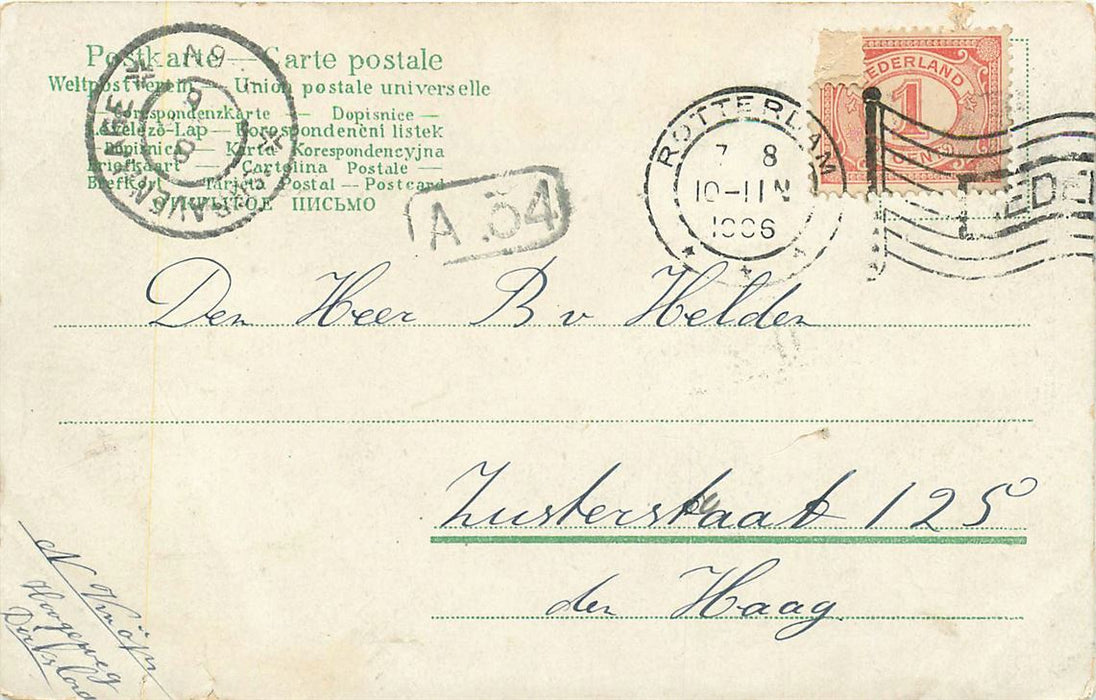 Postkarte — Carte postale
Weltpostverein — Union postale universelle
Korrespondenzkarte — Dopisnice —
Levelező-Lap — Korespondenční listek
Dopisnica — Karta Korespondencyjna
Briefkaart — Cartolina Postale —
Brefkort — Tarjeta Postal — Postcard
ОТКРЫТОЕ ПИСЬМО
A.34
ROTTERDAM
7 8
10-11 N
1906
NEDERLAND
1
CENT
NEDE
Den Heer B v Helden
Zusterstaat 125
den Haag
Hoogeweg